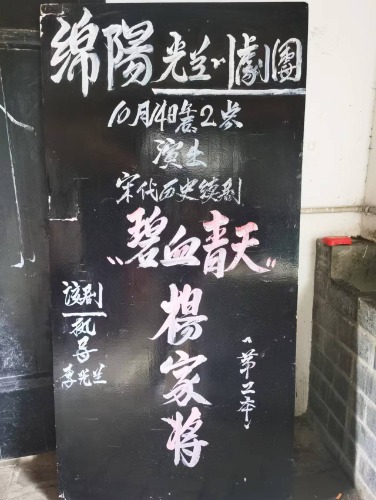 绵陽光兰川劇團
10月14日2点
演出
宋代历史续剧
"碧血青天"
楊家将
"第本"
该剧
执导
李光兰